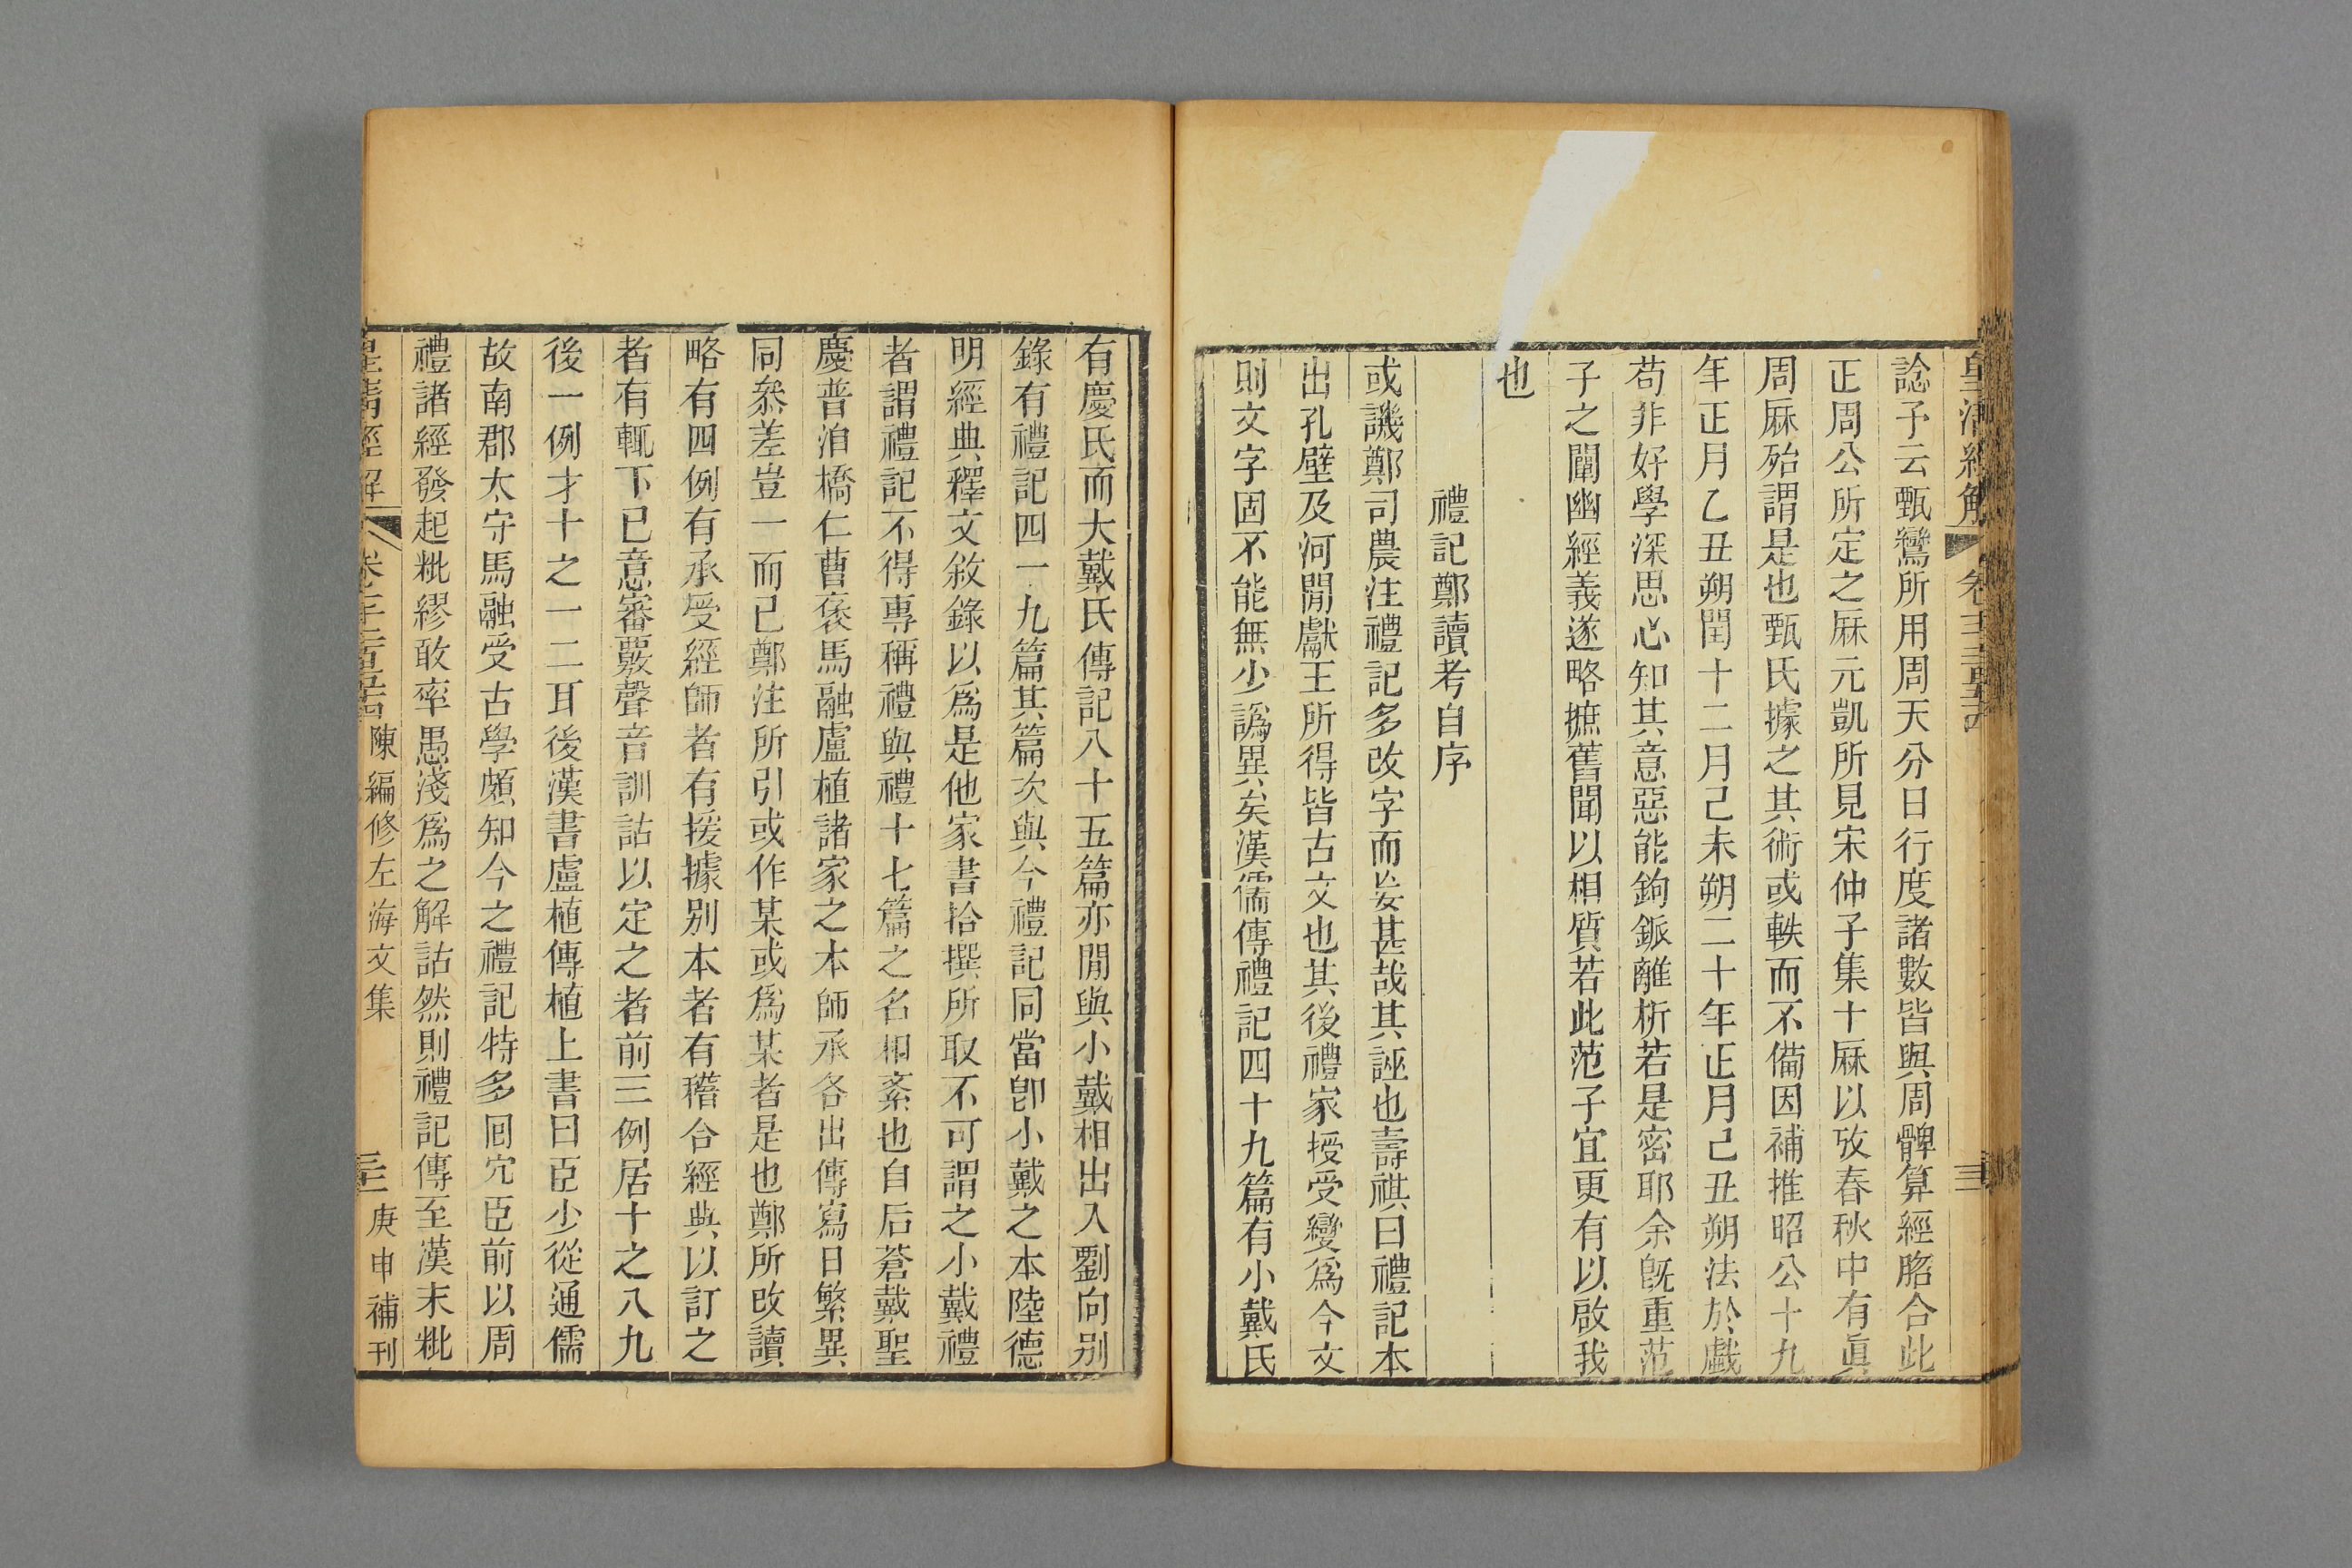 皇清經解 卷千二百五十四 三
諗予云甄鸞所用周天分日行度諸數皆與周髀算經脗合此
正周公所定之厤元凱所見宋仲子集十厤以攷春秋中有眞
周厤殆謂是也甄氏據之其術或軼而不備因補推昭公十九
年正月乙丑朔閏十二月己未朔二十年正月己丑朔法於戲
苟非好學深思心知其意惡能鉤鈲離析若是密耶余旣重范
子之闡幽經義遂略摭舊聞以相質若此范子宜更有以啟我
也
禮記鄭讀考自序
或譏鄭司農注禮記多改字而妄甚哉其誣也壽祺曰禮記本
出孔壁及河閒獻王所得皆古文也其後禮家授受變爲今文
則文字固不能無少譌異矣漢儒傳禮記四十九篇有小戴氏
有慶氏而大戴氏傳記八十五篇亦閒與小戴相出入劉向别
錄有禮記四一九篇其篇次與今禮記同當卽小戴之本陸德
明經典釋文敘錄以爲是他家書拾撰所取不可謂之小戴禮
者謂禮記不得專稱禮與禮十七篇之名相紊也自后蒼戴聖
慶普洎橋仁曹褒馬融盧植諸家之本師承各出傳寫日繁異
同叅差豈一而已鄭注所引或作某或爲某者是也鄭所改讀
略有四例有承受經師者有援據别本者有稽合經典以訂之
者有輒下已意審覈聲音訓詁以定之者前三例居十之八九
後一例才十之一二耳後漢書盧植傳植上書曰臣少從通儒
故南郡太守馬融受古學頗知今之禮記特多回宂臣前以周
禮諸經發起粃繆敢率愚淺爲之解詁然則禮記傳至漢末粃
皇清經解 卷千二百五十四 陳編修左海文集 三 庚申補刊